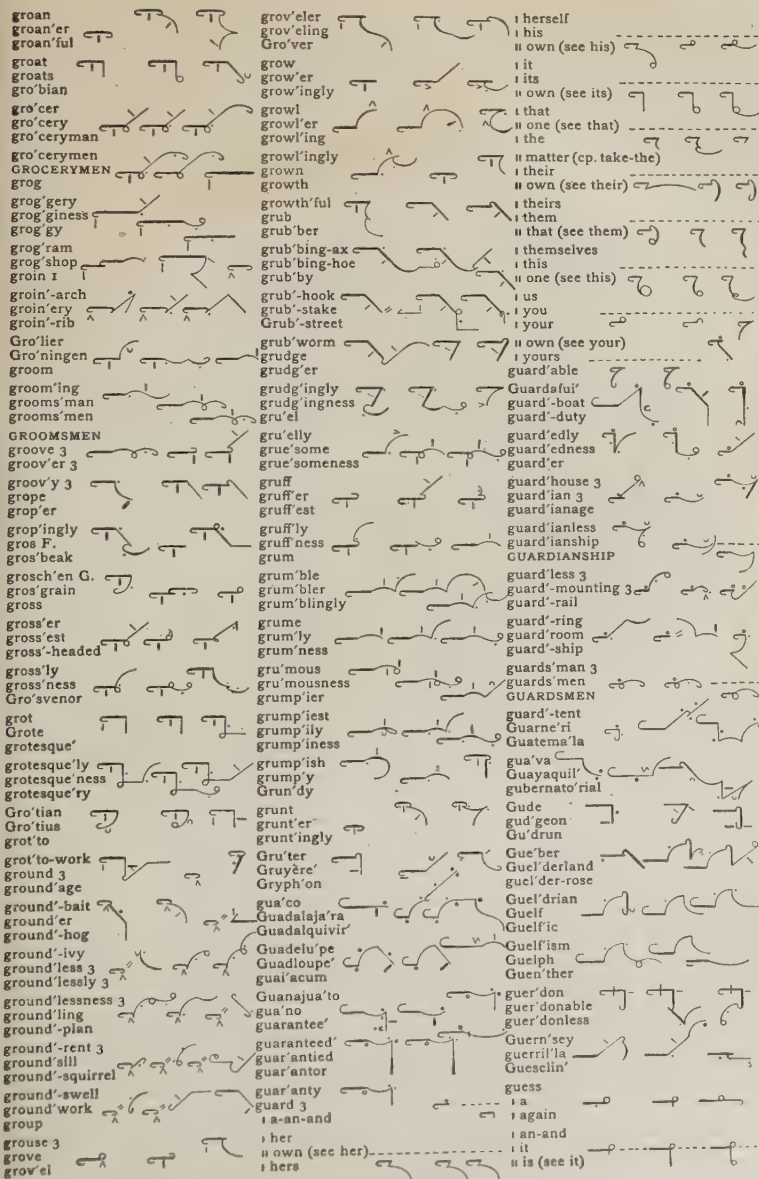 groan
groan'er
groan'ful
groat
groats
gro'bian
gro'cer
gro'cery
gro'ceryman
gro'cerymen
GROCERYMEN
grog
grog'gery
grog'giness
grog'gy
grog'ram
grog'shop
groin 1
groin'-arch
groin'ery
groin'-rib
Gro'lier
Gro'ningen
groom
groom'ing
grooms'man
grooms'men
GROOMSMEN
groove 3
groov'er 3
groov'y 3
grope
grop'er
grop'ingly
gros F.
gros'beak
grosch'en G.
gros'grain
gross
gross'er
gross'est
gross'-headed
gross'ly
gross'ness
Gro'svenor
grot
Grote
grotesque'
grotesque'ly
grotesque'ness
grotesque'ry
Gro'tian
Gro'tius
grot'to
grot'to-work
ground 3
ground'age
ground'-bait
ground'er
ground'-hog
ground'-ivy
ground'less 3
ground'lessly 3
ground'lessness 3
ground'ling
ground'-plan
ground'-rent 3
ground'sill
ground'-squirrel
ground'-swell
ground'work
group
grouse 3
grove
grov'el
grov'eler
grov'eling
Gro'ver
grow
grow'er
grow'ingly
growl
growl'er
growl'ing
growl'ingly
grown
growth
growth'ful
grub
grub'ber
grub'bing-ax
grub'bing-hoe
grub'by
grub'-hook
grub'-stake
Grub'-street
grub'worm
grudge
grudg'er
grudg'ingly
grudg'ingness
gru'el
gru'elly
grue'some
grue'someness
gruff
gruff'er
gruff'est
gruff'ly
gruff'ness
grum
grum'ble
grum'bler
grum'blingly
grume
grum'ly
grum'ness
gru'mous
gru'mousness
grump'ier
grump'iest
grump'ily
grump'iness
grump'ish
grump'y
Grun'dy
grunt
grunt'er
grunt'ingly
Gru'ter
Gruyère'
Gryph'on
gua'co
Guadalaja'ra
Guadalquivir'
Guadelu'pe
Guadloupe'
guai'acum
Guanajua'to
gua'no
guarantee'
guaranteed'
guar'antied
guar'antor
guar'anty
guard 3
ı a-an-and
ı her
ıı own (see her)
ı hers
ı herself
ı his
ıı own (see his)
ı it
ı its
ıı own (see its)
ı that
ıı one (see that)
ı the
ıı matter (cp. take-the)
ı their
ıı own (see their)
ı theirs
ı them
ıı that (see them)
ı themselves
ı this
ıı one (see this)
ı us
ı you
ı your
ıı own (see your)
ı yours
guard'able
Guardafui'
guard'-boat
guard'-duty
guard'edly
guard'edness
guard'er
guard'house 3
guard'ian 3
guard'ianage
guard'ianless
guard'ianship
GUARDIANSHIP
guard'less 3
guard'-mounting 3
guard'-rail
guard'-ring
guard'room
guard'-ship
guards'man 3
guards'men
GUARDSMEN
guard'-tent
Guarne'ri
Guatema'la
gua'va
Guayaquil'
gubernato'rial
Gude
gud'geon
Gu'drun
Gue'ber
Guel'derland
guel'der-rose
Guel'drian
Guelf
Guelf'ic
Guelf'ism
Guelph
Guen'ther
guer'don
guer'donable
guer'donless
Guern'sey
guerril'la
Guesclin'
guess
ı a
ı again
ı an-and
ı it
ıı is (see it)